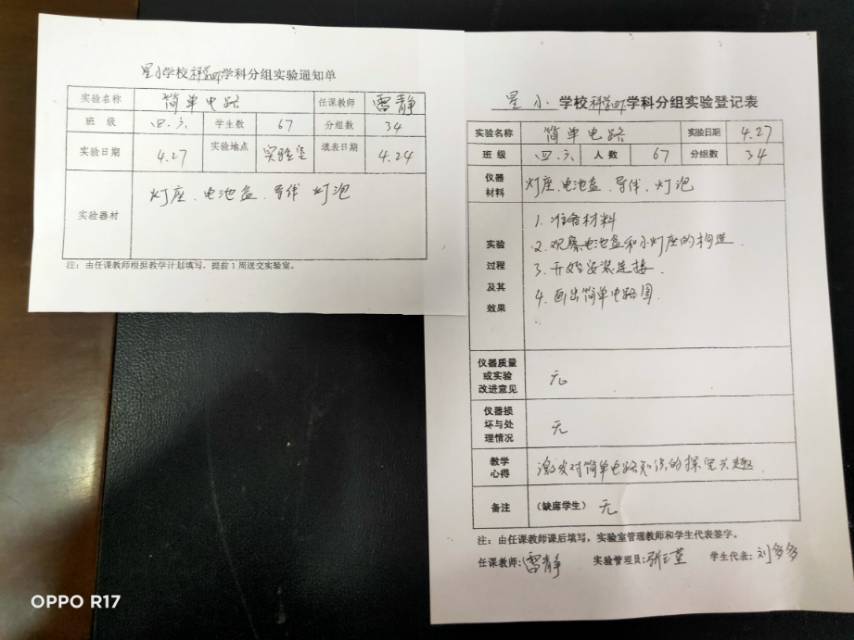 星小学校科学学科分组实验通知单
实验名称 简单电路 任课教师 雷静
班 级 四.六 学生数 67 分组数 34
实验日期 4.27 实验地点 实验室 填表日期 4.24
实验器材 灯座、电池盒、导线 灯泡
注：由任课教师根据教学计划填写，提前1周送交实验室。
星小 学校 学科分组实验登记表
实验名称 简单电路 实验日期 4.27
班 级 四.六 人 数 67 分组数 34
仪器材料 灯座、电池盒、导线、灯泡
实验过程及其效果
1. 准备材料
2. 观察电池盒和小灯座的构造.
3. 开始安装连接.
4. 画出简单电路图.
仪器质量或实验改进意见 无
仪器损坏与处理情况 无
教学心得 激发对简单电路知识的探究兴趣.
备注 （缺席学生） 无
注：由任课教师课后填写，实验室管理教师和学生代表签字。
任课教师:雷静 实验管理员: 学生代表: 刘多多
OPPO R17